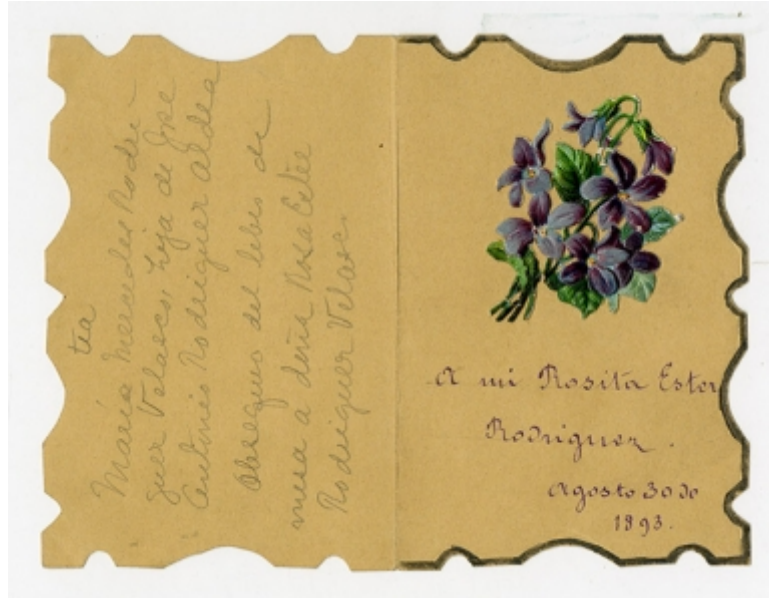 tía
María Mercedes Rodrí
guez Velasco, hija de José
Antonio Rodriguez Aldea
Obsequio del libro de
misa a doña Rosa Ester
Rodriguez Velasc.
A mi Rosita Ester
Rodriguez.
Agosto 30 de
1893.